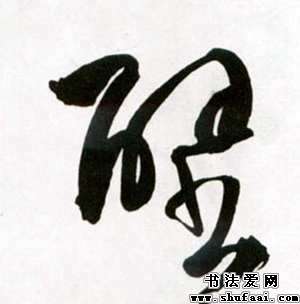 醒
书法爱网
www.shufaai.com